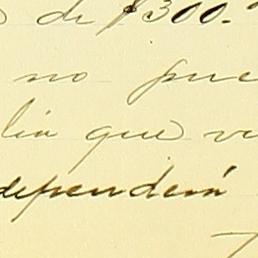 de $300.-
no pue
lia que vi
dependerá